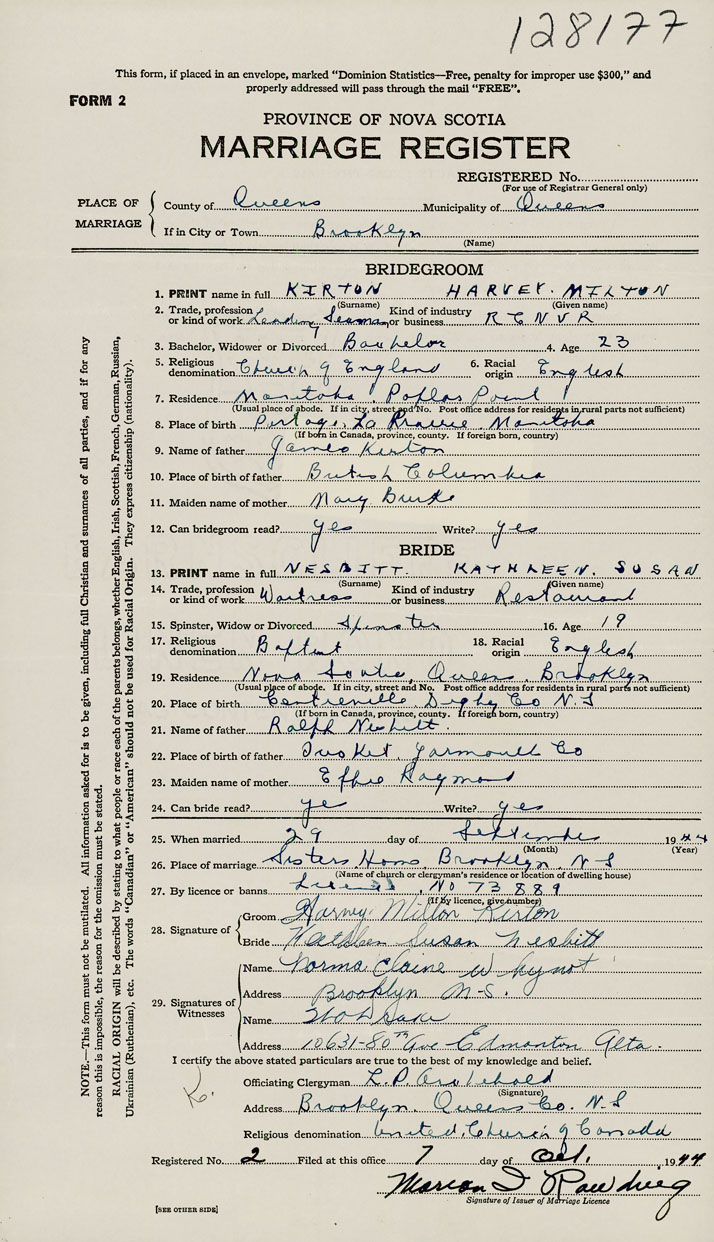 128177
This form, if placed in an envelope, marked "Dominion Statistics—Free, penalty for improper use $300," and
properly addressed will pass through the mail "FREE".
FORM 2
PROVINCE OF NOVA SCOTIA
MARRIAGE REGISTER
REGISTERED No.
(For use of Registrar General only)
PLACE OF MARRIAGE
County of Queens Municipality of Queens
If in City or Town Brooklyn
(Name)
BRIDEGROOM
1. PRINT name in full KIRTON HARVEY. MILTON
(Surname) (Given name)
2. Trade, profession or kind of work Leading Seaman Kind of industry or business R C N V R
3. Bachelor, Widower or Divorced Bachelor 4. Age 23
5. Religious denomination Church of England 6. Racial origin English
7. Residence Manitoba, Poplar Point
(Usual place of abode. If in city, street and No. Post office address for residents in rural parts not sufficient)
8. Place of birth Portage La Prairie Manitoba
(If born in Canada, province, county. If foreign born, country)
9. Name of father James Kirton
10. Place of birth of father British Columbia
11. Maiden name of mother Mary Burke
12. Can bridegroom read? yes Write? yes
BRIDE
13. PRINT name in full NESBITT. KATHLEEN. SUSAN
(Surname) (Given name)
14. Trade, profession or kind of work Waitress Kind of industry or business Restaurant
15. Spinster, Widow or Divorced Spinster 16. Age 19
17. Religious denomination Baptist 18. Racial origin English
19. Residence Nova Scotia, Queens, Brooklyn
(Usual place of abode. If in city, street and No. Post office address for residents in rural parts not sufficient)
20. Place of birth Centreville Digby Co N.S
(If born in Canada, province, county. If foreign born, country)
21. Name of father Ralph Nesbitt.
22. Place of birth of father Tusket, Yarmouth Co
23. Maiden name of mother Effie Raymond
24. Can bride read? yes Write? yes
25. When married 29 day of September 1944
(Month) (Year)
26. Place of marriage Sisters Home, Brooklyn, N-S
(Name of church or clergyman's residence or location of dwelling house)
27. By licence or banns License, No 73889
(If by licence, give number)
28. Signature of
Groom Harvey Milton Kirton
Bride Kathleen Susan Nesbitt
29. Signatures of Witnesses
Name Norma Elaine Wynot
Address Brooklyn N-S.
Name
Address 10631-80th Ave - Edmonton Alta.
I certify the above stated particulars are true to the best of my knowledge and belief.
Officiating Clergyman L. P. Archibald
(Signature)
Address Brooklyn, Queens Co. N.S
Religious denomination United Church of Canada
Registered No. 2 Filed at this office 7 day of Oct. 1944
Marion
Signature of Issuer of Marriage Licence
[SEE OTHER SIDE]
NOTE.—This form must not be mutilated. All information asked for is to be given, including full Christian and surnames of all parties, and if for any
reason this is impossible, the reason for the omission must be stated.
RACIAL ORIGIN will be described by stating to what people or race each of the parents belongs, whether English, Irish, Scottish, French, German, Russian,
Ukrainian (Ruthenian), etc. The words "Canadian" or "American" should not be used for Racial Origin. They express citizenship (nationality).